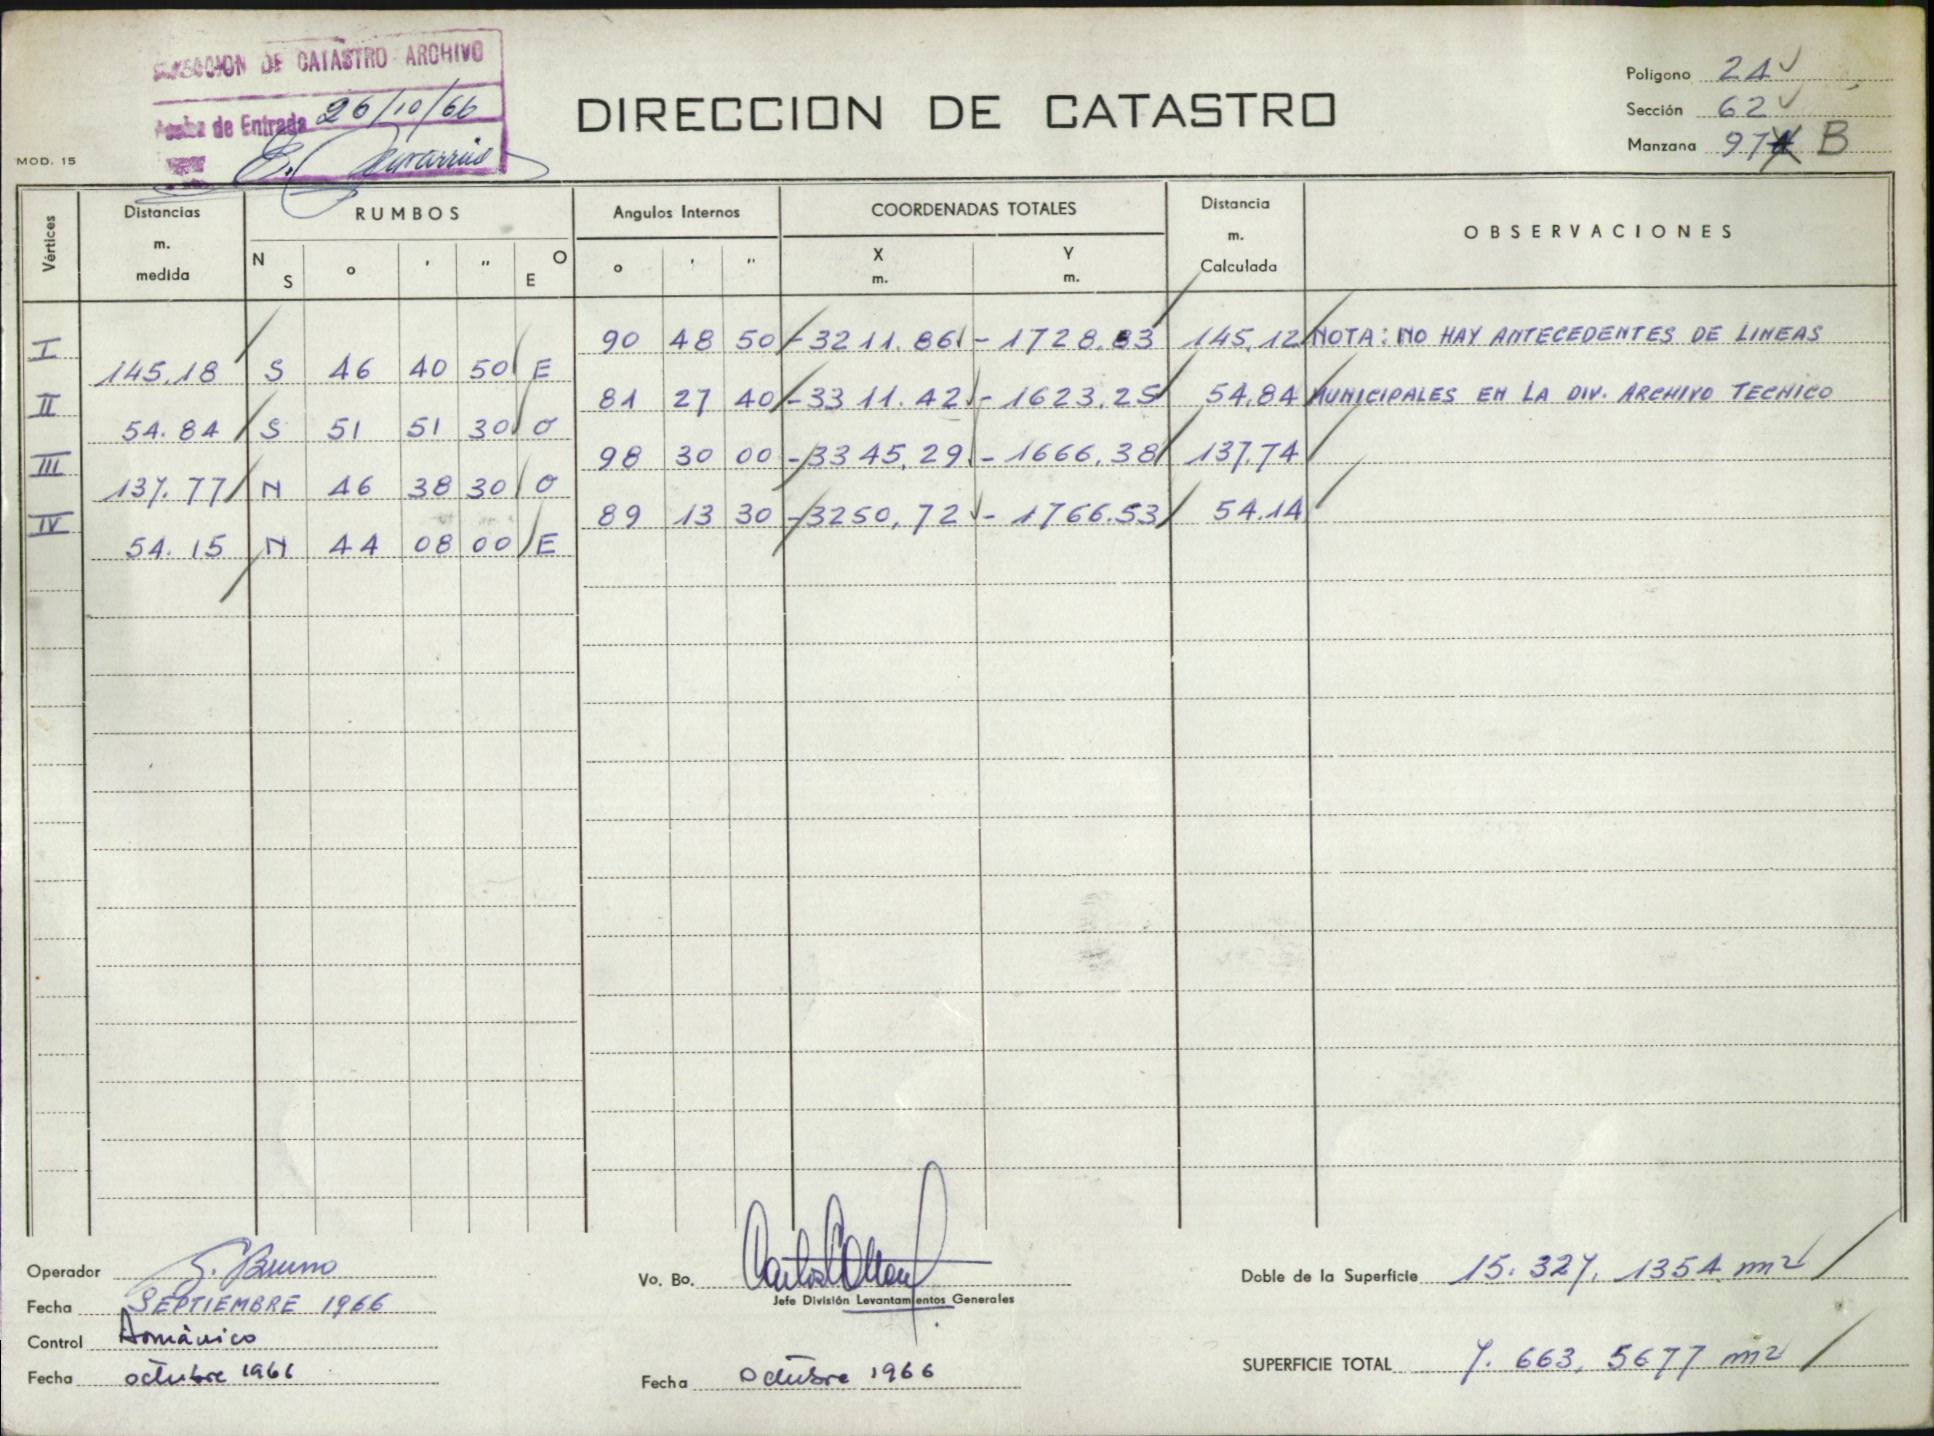 DIRECCION DE CATASTRO ARCHIVO
Fecha de Entrada 26/10/66
MOD. 15
DIRECCION DE CATASTRO
Polígono 24
Sección 62
Manzana 97 B
Vértices
Distancias m. medida
RUMBOS
N S ° ' " E O
Angulos Internos
° ' "
COORDENADAS TOTALES
X m. Y m.
Distancia m. Calculada
OBSERVACIONES
I 90 48 50 -3211.86 -1728.83 145,12 NOTA: NO HAY ANTECEDENTES DE LINEAS
145,18 S 46 40 50 E
II 81 27 40 -3311.42 -1623.25 54.84 MUNICIPALES EN LA DIV. ARCHIVO TECNICO
54.84 S 51 51 30 O
III 98 30 00 -3345,29 -1666,38 137.74
137.77 N 46 38 30 O
IV 89 13 30 -3250,72 -1766.53 54.14
54.15 N 44 08 00 E
Operador G. Bruno
Fecha SEPTIEMBRE 1966
Control Románico
Fecha octubre 1966
Vo. Bo.
Jefe División Levantamientos Generales
Fecha octubre 1966
Doble de la Superficie 15.327,1354 m2
SUPERFICIE TOTAL 7.663,5677 m2